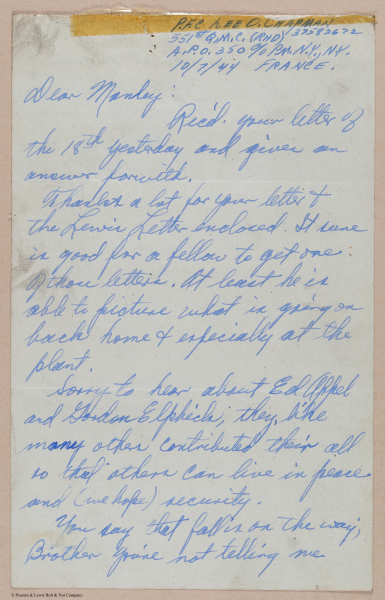 PFC LEE O. CHAPMAN
551st Q.M.C. (RHD) 37582672
A.P.O. 350 c/o P.M. N.Y., N.Y.
10/7/44 FRANCE.
Dear Manley:
Rec'd. your letter of
the 18th yesterday and given an
answer forwith.
Thanks a lot for your letter &
the Lewis Letter enclosed. It sure
is good for a fellow to get one
of thou letters. At least he is
able to picture what is going on
back home & especially at the
plant.
Sorry to hear about Ed Appel
and Gordon Elphick; they, like
many others contributed their all
so that others can live in peace
and (we hope) security.
You say that fall is on the way,
Brother you're not telling me
© Pioneer & Lewis Bolt & Nut Company